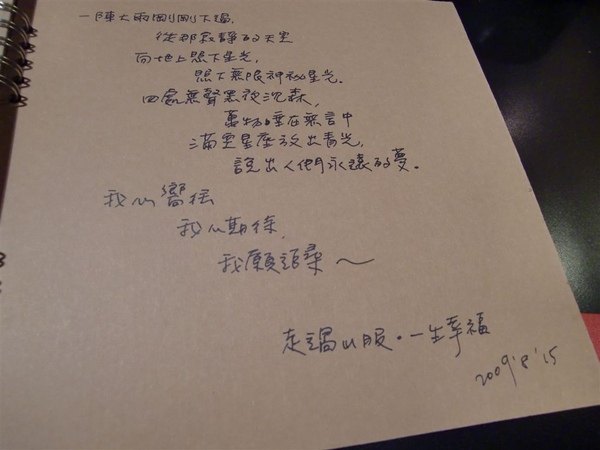 一陣大雨剛剛下過,
從那寂靜的天空
向地上照下星光,
照下無限神秘星光.
四處無聲黑夜沈森,
萬物睡在無言中
滿空星座放出青光,
說出人們永遠的夢.
我心嚮往
我心期待,
我願追尋～
走過山服·一生幸福
2009'8'15